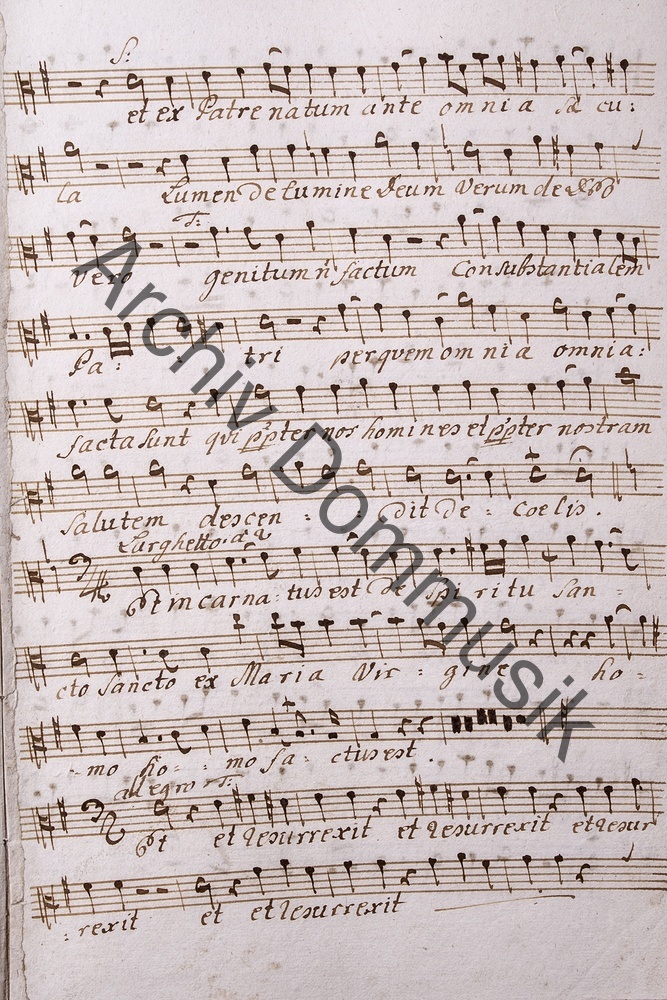 S:
et ex Patre natum ante omnia sæ cu:
la Lumen de lumine Deum Verum de Deo
T:
vero genitum ñ factum Consubstantialem
Pa: : tri per quem omnia omnia:
facta sunt qui ppter nos homines et ppter nostram
salutem descen: : dit de: Coelis.
Larghetto. a 2
Et incarna: tus est de Spiritu San-
cto Sancto ex Maria Vir: gine ho-
-mo ho-: mo fa: ctus est.
allegro T:
Et et resurrexit et resurrexit et resur
:rexit et et resurrexit
Archiv Dommusik